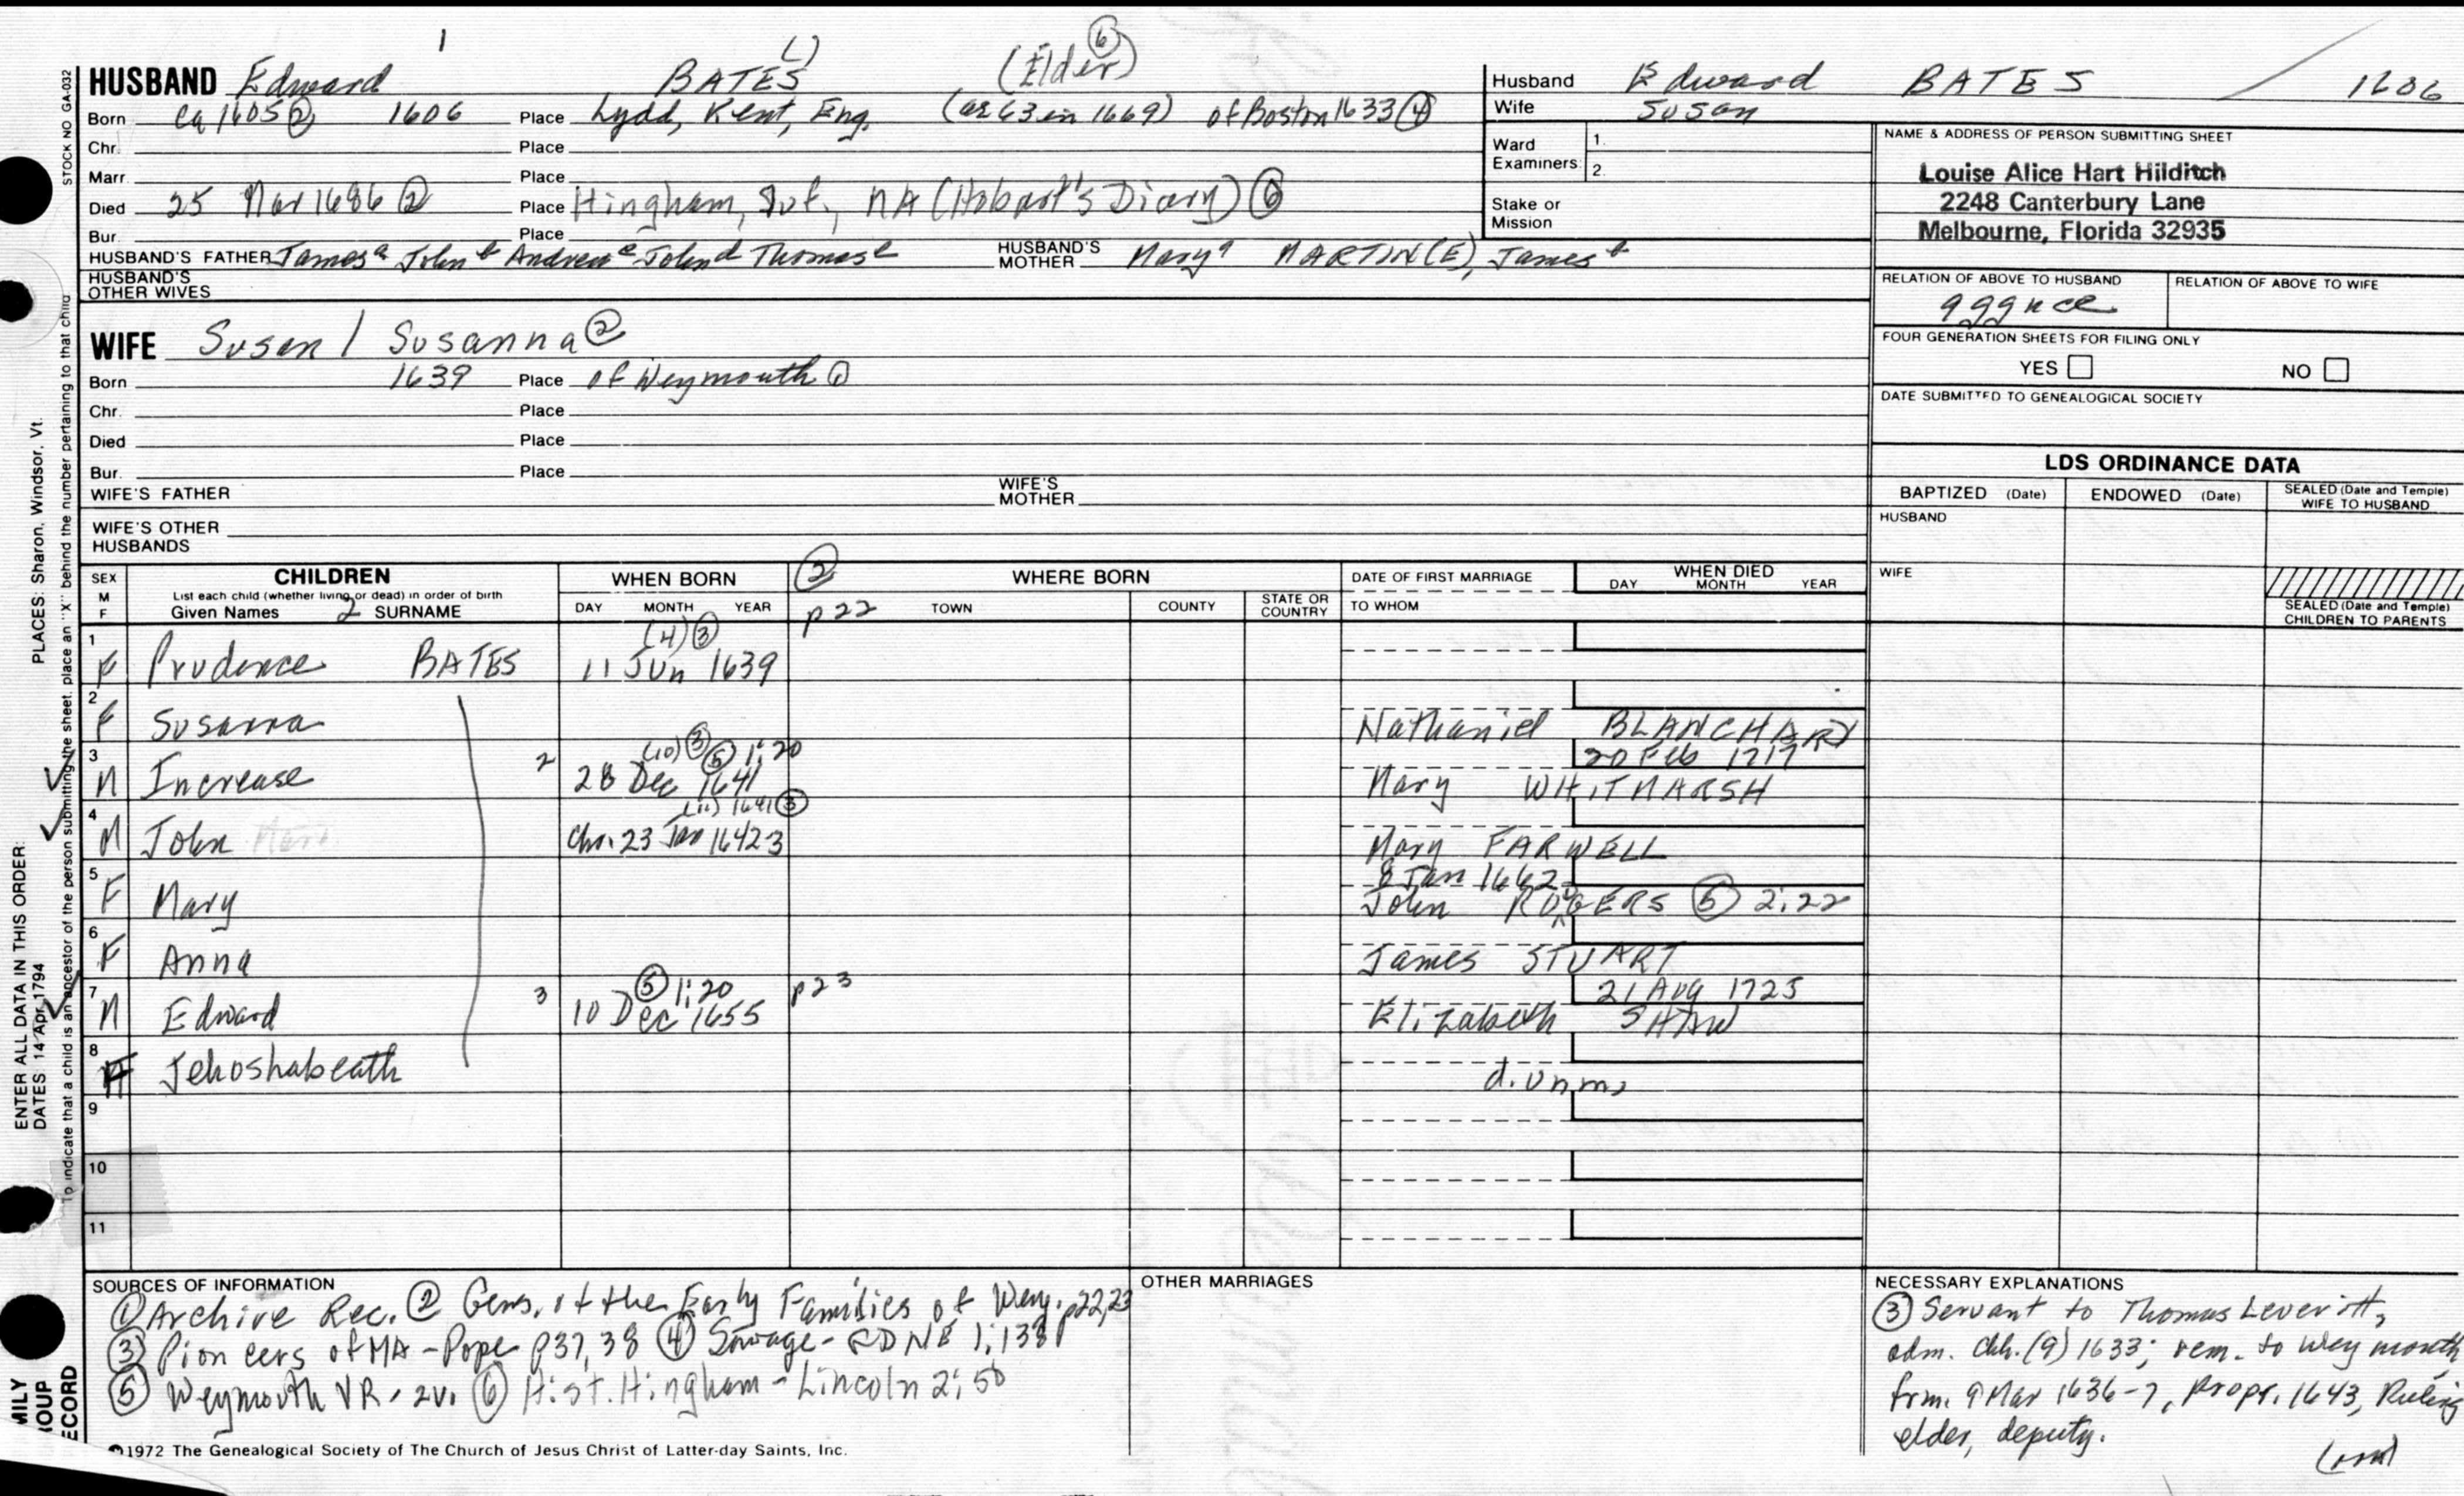 1
HUSBAND Edward BATES (Elder) ⑥
Born ca 1605② 1606 Place Lydd, Kent, Eng. (ae 63 in 1669) of Boston 1633 ④
Chr. Place
Marr. Place
Died 25 Mar 1686 ② Place Hingham, Suf., MA (Hobart's Diary) ⑥
Bur. Place
HUSBAND'S FATHER James a John b Andrew c John d Thomas e HUSBAND'S MOTHER Mary a MARTIN(E), James b
HUSBAND'S OTHER WIVES
Husband Edward BATES 1606
Wife Susan
Ward Examiners: 1.
2.
Stake or Mission
NAME & ADDRESS OF PERSON SUBMITTING SHEET
Louise Alice Hart Hilditch
2248 Canterbury Lane
Melbourne, Florida 32935
RELATION OF ABOVE TO HUSBAND RELATION OF ABOVE TO WIFE
gggnce
FOUR GENERATION SHEETS FOR FILING ONLY
YES NO
DATE SUBMITTED TO GENEALOGICAL SOCIETY
WIFE Susan / Susanna ②
Born 1639 Place of Weymouth ①
Chr. Place
Died Place
Bur. Place
WIFE'S FATHER WIFE'S MOTHER
WIFE'S OTHER HUSBANDS
LDS ORDINANCE DATA
BAPTIZED (Date) ENDOWED (Date) SEALED (Date and Temple) WIFE TO HUSBAND
HUSBAND
WIFE
SEALED (Date and Temple) CHILDREN TO PARENTS
SEX M F
CHILDREN
List each child (whether living or dead) in order of birth
Given Names 2 SURNAME
WHEN BORN
DAY MONTH YEAR
② p 22
WHERE BORN
TOWN COUNTY STATE OR COUNTRY
DATE OF FIRST MARRIAGE
TO WHOM
WHEN DIED
DAY MONTH YEAR
(4) ③
1 F Prudence BATES 11 Jun 1639
2 F Susanna Nathaniel BLANCHARD
(10) ③ ⑤ 1:20 20 Feb 1717
3 M Increase 2 28 Dec 1641 Mary WHITMARSH
(11) 1641 ③
4 M John Chr. 23 Jan 1642 3 Mary FARWELL
8 Jan 1662
5 F Mary John ROGERS ⑤ 2:22
6 F Anna James STUART
⑤ 1:20 p 23 21 Aug 1725
7 M Edward 3 10 Dec 1655 Elizabeth SHAW
8 F Jehoshabeath d. unm.
9
10
11
SOURCES OF INFORMATION
① Archive Rec. ② Gens. of the Early Families of Wey. p22,23
③ Pioneers of MA - Pope p37, 38 ④ Savage - GDNE 1:138
⑤ Weymouth VR, 2v. ⑥ Hist. Hingham - Lincoln 2:50
OTHER MARRIAGES
NECESSARY EXPLANATIONS
③ Servant to Thomas Leveritt,
adm. chh. (9) 1633; rem. to Weymouth,
frm. 9 Mar 1636-7, propr. 1643, Ruling
elder, deputy.
©1972 The Genealogical Society of The Church of Jesus Christ of Latter-day Saints, Inc.
STOCK NO GA-032
To indicate that a child is an ancestor of the person submitting the sheet, place an "X" behind the number pertaining to that child
PLACES: Sharon, Windsor, Vt.
ENTER ALL DATA IN THIS ORDER:
DATES 14 Apr 1794
MILY
ROUP
ECORD